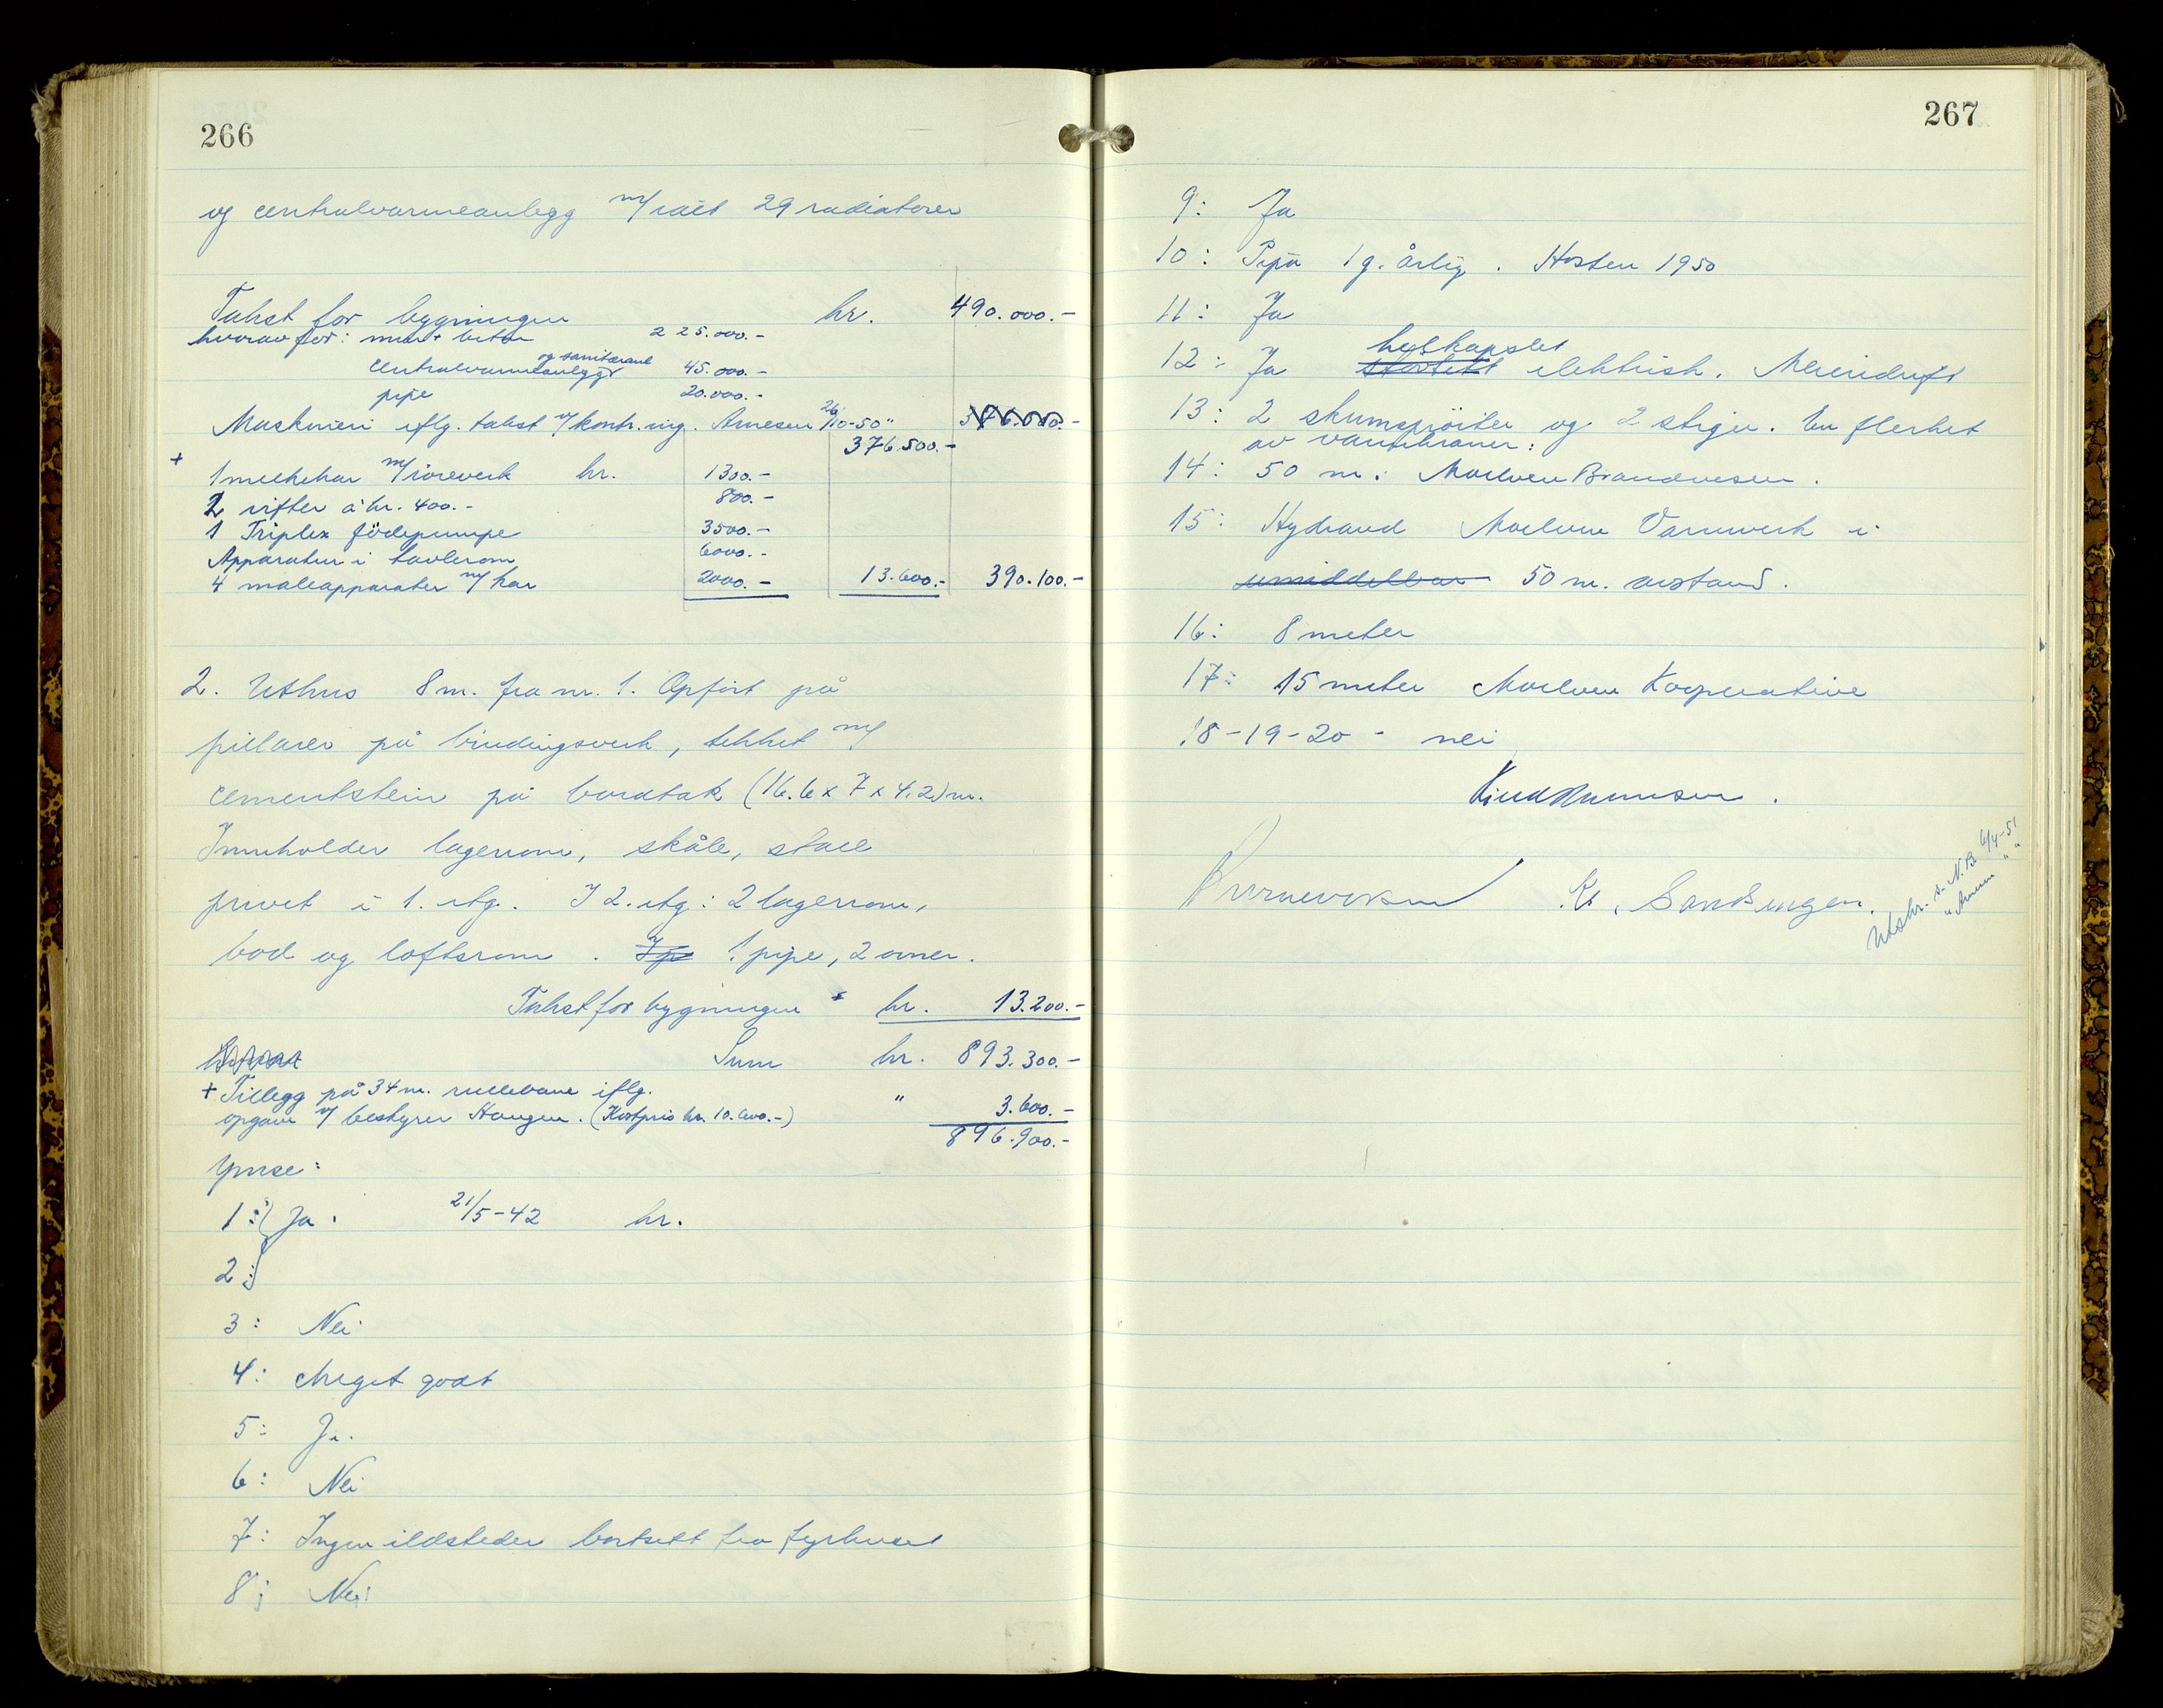 266
og centralvarmeanlegg m/ialt 29 radiatorer
Takst for bygningen kr. 490.000.-
hvorav for: mur + beton 225.000.-
og sanitæranl
centralvarmeanlegg 45.000.-
pipe 20.000.-
Maskineri iflg. takst v/kontr.ing. Arnesen 26/10-50 " 376.000.-
376.500.-
+
1 melkekar m/røreverk kr. 1300.-
2 vifter á kr. 400.- 800.-
1 Triplex födepumpe 3500.-
Apparatur i tavlerom 6000.-
4 måleapparater m/kar 2000.- 13.600.- 390.100.-
2. Uthus 8 m. fra nr. 1. Opført på
pillarer på bindingsverk, tekket m/
cementstein på bordtak (16.6 x 7 x 4.2) m.
Innholder lagerrom, skåle, stall
privet i 1. etg. I 2. etg: 2 lagerrom,
bod og loftsrom. Ip 1 pipe, 2 ovner.
Takst for bygningen kr. 13.200.-
Sum kr. 893.300.-
+ Tillegg på 34 m. rullebane iflg.
opgave v/ bestyrer Haugen. (Kostpris kr. 10.600.-) " 3.600.-
896.900.-
Ymse:
1: Ja. 21/5-42 kr.
2:
3: Nei
4: Meget godt
5: Ja.
6: Nei
7: Ingen ildsteder bortsett fra fyrhuset
8: Nei
267
9: Ja
10: Pipa 1 g. årlig. Høsten 1950
11: Ja
helkapslet
12: Ja elektrisk. Meieridrift
13: 2 skumsprøiter og 2 stiger. En flerhet
av vannkraner:
14: 50 m. Moelven Brandvesen.
15: Hydrand Moelven Vannverk i
umiddelbar 50 m. avstand.
16: 8 meter
17: 15 meter Moelven Kooperative
18-19-20 - nei
Kr. Sandengen.
Utskr. s. N.B. 6/4-51
" Arnesen " "